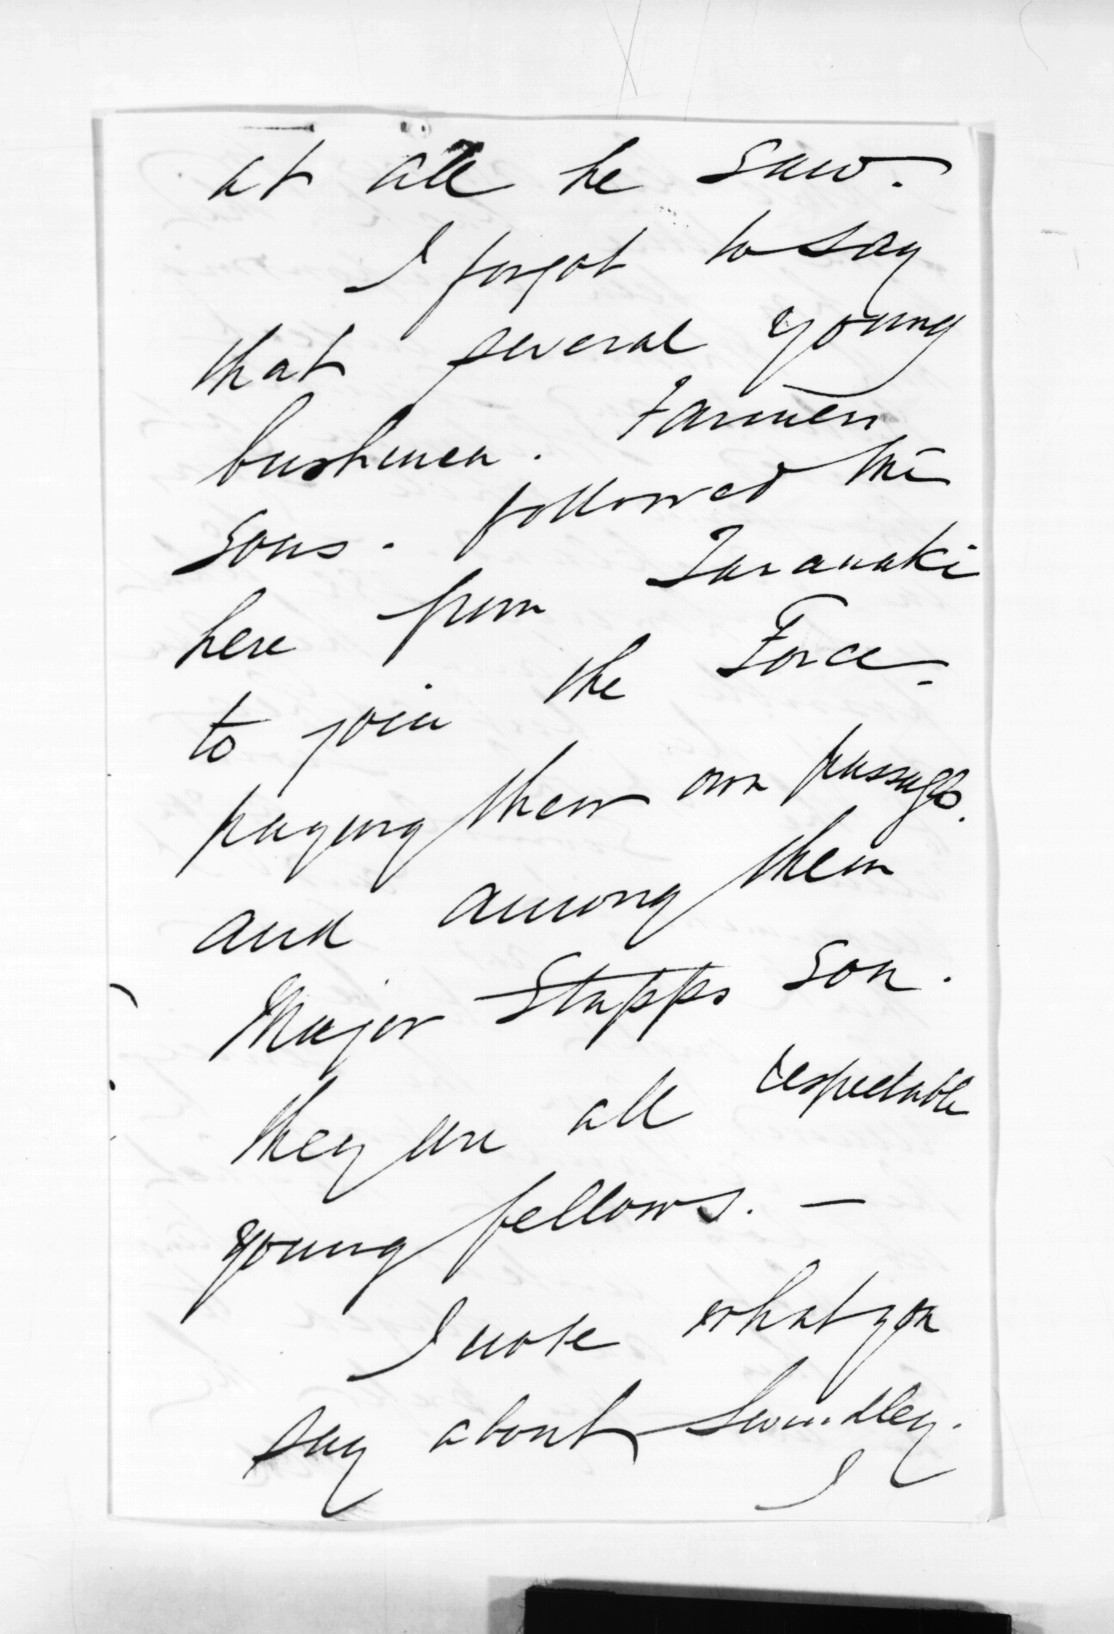 at all he saw.
I forgot to say
that several young
bushmen. Farmers
sons. followed me
here from Taranaki
to join the Force.
paying their own passage.
and among them
Major Stapps son.
they are all respectable
young fellows. —
I note what you
say about Swindley.
I